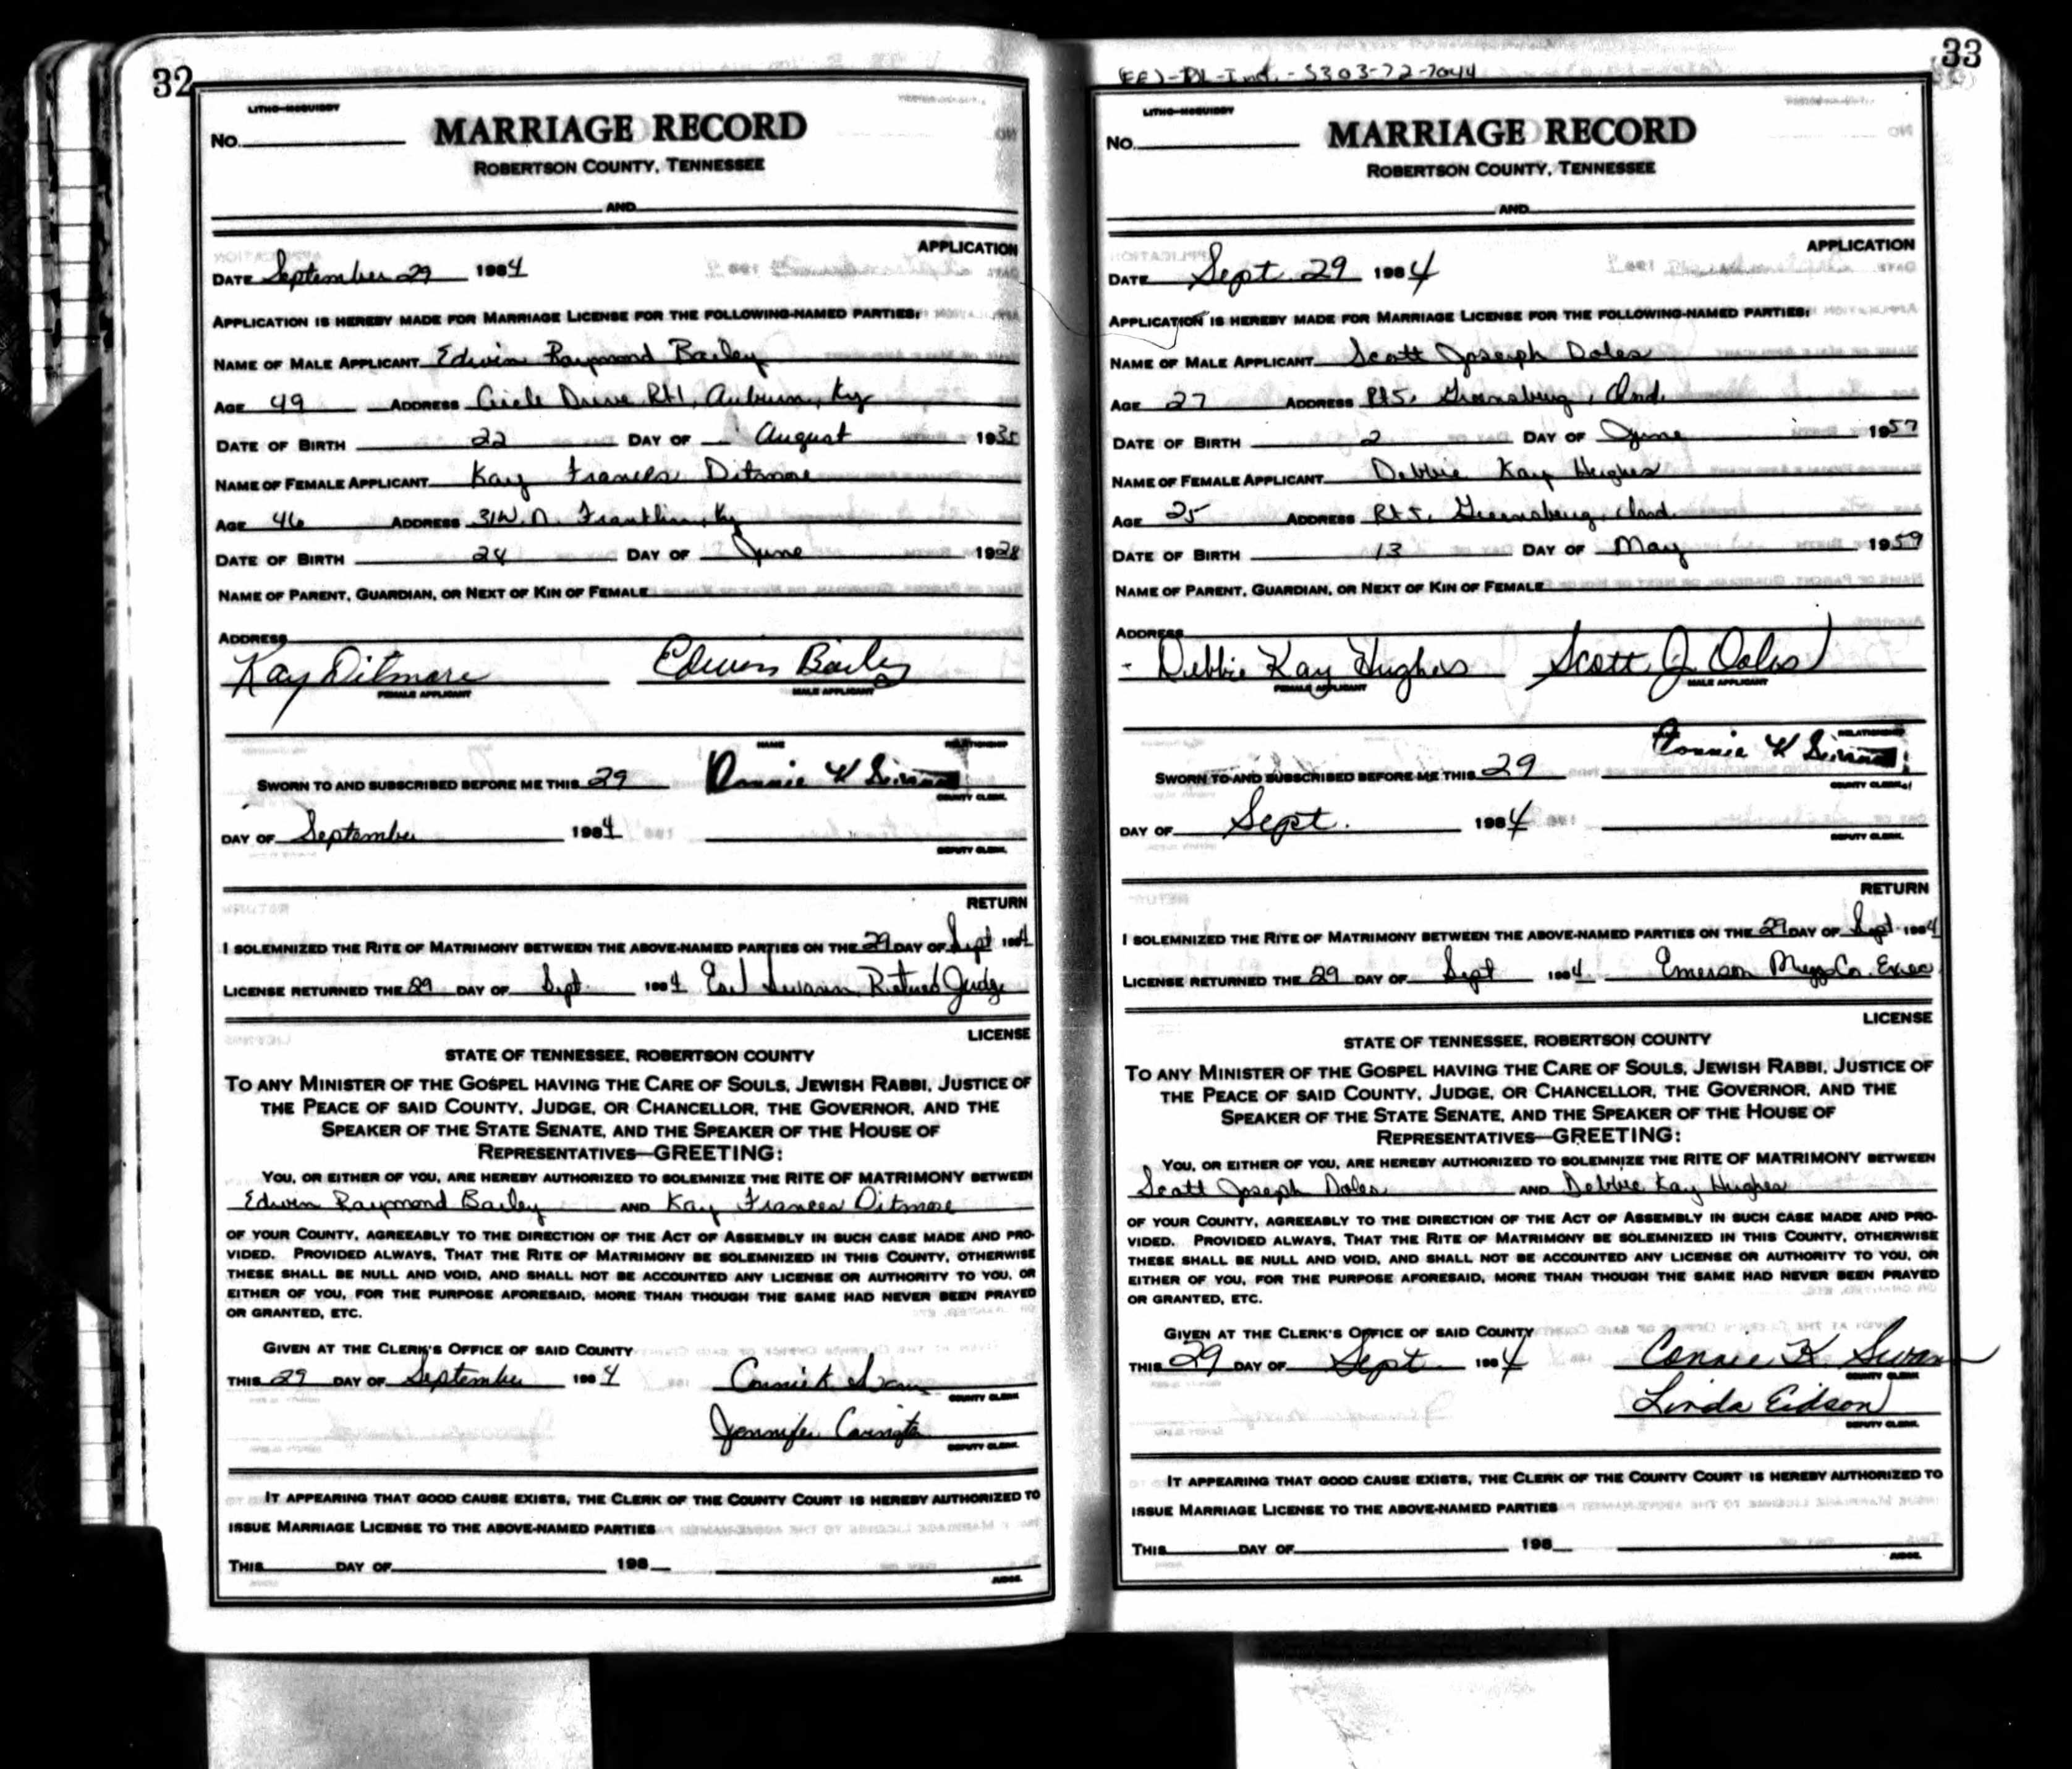 32
LITHO-MCQUIDDY
No.
MARRIAGE RECORD
ROBERTSON COUNTY, TENNESSEE
AND
APPLICATION
DATE September 29 1984
APPLICATION IS HEREBY MADE FOR MARRIAGE LICENSE FOR THE FOLLOWING-NAMED PARTIES:
NAME OF MALE APPLICANT Edwin Raymond Bailey
AGE 49 ADDRESS Circle Drive Rt 1, Auburn, Ky
DATE OF BIRTH 22 DAY OF August 1935
NAME OF FEMALE APPLICANT Kay Frances Ditmore
AGE 46 ADDRESS 31W. N. Franklin, Ky
DATE OF BIRTH 24 DAY OF June 1938
NAME OF PARENT, GUARDIAN, OR NEXT OF KIN OF FEMALE
ADDRESS
Kay Ditmore Edwin Bailey
FEMALE APPLICANT MALE APPLICANT
NAME RELATIONSHIP
SWORN TO AND SUBSCRIBED BEFORE ME THIS 29
COUNTY CLERK
DAY OF September 1984
DEPUTY CLERK
RETURN
I SOLEMNIZED THE RITE OF MATRIMONY BETWEEN THE ABOVE-NAMED PARTIES ON THE 29 DAY OF Sept 1984
LICENSE RETURNED THE 29 DAY OF Sept. 1984 Earl Swann, Retired Judge
LICENSE
STATE OF TENNESSEE, ROBERTSON COUNTY
TO ANY MINISTER OF THE GOSPEL HAVING THE CARE OF SOULS, JEWISH RABBI, JUSTICE OF
THE PEACE OF SAID COUNTY, JUDGE, OR CHANCELLOR, THE GOVERNOR, AND THE
SPEAKER OF THE STATE SENATE, AND THE SPEAKER OF THE HOUSE OF
REPRESENTATIVES—GREETING:
YOU, OR EITHER OF YOU, ARE HEREBY AUTHORIZED TO SOLEMNIZE THE RITE OF MATRIMONY BETWEEN
Edwin Raymond Bailey AND Kay Frances Ditmore
OF YOUR COUNTY, AGREEABLY TO THE DIRECTION OF THE ACT OF ASSEMBLY IN SUCH CASE MADE AND PRO-
VIDED. PROVIDED ALWAYS, THAT THE RITE OF MATRIMONY BE SOLEMNIZED IN THIS COUNTY, OTHERWISE
THESE SHALL BE NULL AND VOID, AND SHALL NOT BE ACCOUNTED ANY LICENSE OR AUTHORITY TO YOU, OR
EITHER OF YOU, FOR THE PURPOSE AFORESAID, MORE THAN THOUGH THE SAME HAD NEVER BEEN PRAYED
OR GRANTED, ETC.
GIVEN AT THE CLERK'S OFFICE OF SAID COUNTY
THIS 29 DAY OF September 1984 Connie K Swann
COUNTY CLERK
Jennifer Covington
DEPUTY CLERK
IT APPEARING THAT GOOD CAUSE EXISTS, THE CLERK OF THE COUNTY COURT IS HEREBY AUTHORIZED TO
ISSUE MARRIAGE LICENSE TO THE ABOVE-NAMED PARTIES
THIS DAY OF 198
JUDGE
33
(EE)-DL-Ind.-S303-72-7044
LITHO-MCQUIDDY
No.
MARRIAGE RECORD
ROBERTSON COUNTY, TENNESSEE
AND
APPLICATION
DATE Sept. 29 1984
APPLICATION IS HEREBY MADE FOR MARRIAGE LICENSE FOR THE FOLLOWING-NAMED PARTIES:
NAME OF MALE APPLICANT Scott Joseph Doles
AGE 27 ADDRESS Rt 5, Greensburg, Ind.
DATE OF BIRTH 2 DAY OF June 1957
NAME OF FEMALE APPLICANT Debbie Kay Hughes
AGE 25 ADDRESS Rt 5, Greensburg, Ind.
DATE OF BIRTH 13 DAY OF May 1959
NAME OF PARENT, GUARDIAN, OR NEXT OF KIN OF FEMALE
ADDRESS
Debbie Kay Hughes Scott J. Doles
FEMALE APPLICANT MALE APPLICANT
RELATIONSHIP
SWORN TO AND SUBSCRIBED BEFORE ME THIS 29
COUNTY CLERK
DAY OF Sept. 1984
DEPUTY CLERK
RETURN
I SOLEMNIZED THE RITE OF MATRIMONY BETWEEN THE ABOVE-NAMED PARTIES ON THE 29 DAY OF Sept. 1984
LICENSE RETURNED THE 29 DAY OF Sept 1984 Emerson Co. Exec
LICENSE
STATE OF TENNESSEE, ROBERTSON COUNTY
TO ANY MINISTER OF THE GOSPEL HAVING THE CARE OF SOULS, JEWISH RABBI, JUSTICE OF
THE PEACE OF SAID COUNTY, JUDGE, OR CHANCELLOR, THE GOVERNOR, AND THE
SPEAKER OF THE STATE SENATE, AND THE SPEAKER OF THE HOUSE OF
REPRESENTATIVES—GREETING:
YOU, OR EITHER OF YOU, ARE HEREBY AUTHORIZED TO SOLEMNIZE THE RITE OF MATRIMONY BETWEEN
Scott Joseph Doles AND Debbie Kay Hughes
OF YOUR COUNTY, AGREEABLY TO THE DIRECTION OF THE ACT OF ASSEMBLY IN SUCH CASE MADE AND PRO-
VIDED. PROVIDED ALWAYS, THAT THE RITE OF MATRIMONY BE SOLEMNIZED IN THIS COUNTY, OTHERWISE
THESE SHALL BE NULL AND VOID, AND SHALL NOT BE ACCOUNTED ANY LICENSE OR AUTHORITY TO YOU, OR
EITHER OF YOU, FOR THE PURPOSE AFORESAID, MORE THAN THOUGH THE SAME HAD NEVER BEEN PRAYED
OR GRANTED, ETC.
GIVEN AT THE CLERK'S OFFICE OF SAID COUNTY
THIS 29 DAY OF Sept. 1984 Connie K Swann
COUNTY CLERK
Linda Eidson
DEPUTY CLERK
IT APPEARING THAT GOOD CAUSE EXISTS, THE CLERK OF THE COUNTY COURT IS HEREBY AUTHORIZED TO
ISSUE MARRIAGE LICENSE TO THE ABOVE-NAMED PARTIES
THIS DAY OF 198
JUDGE